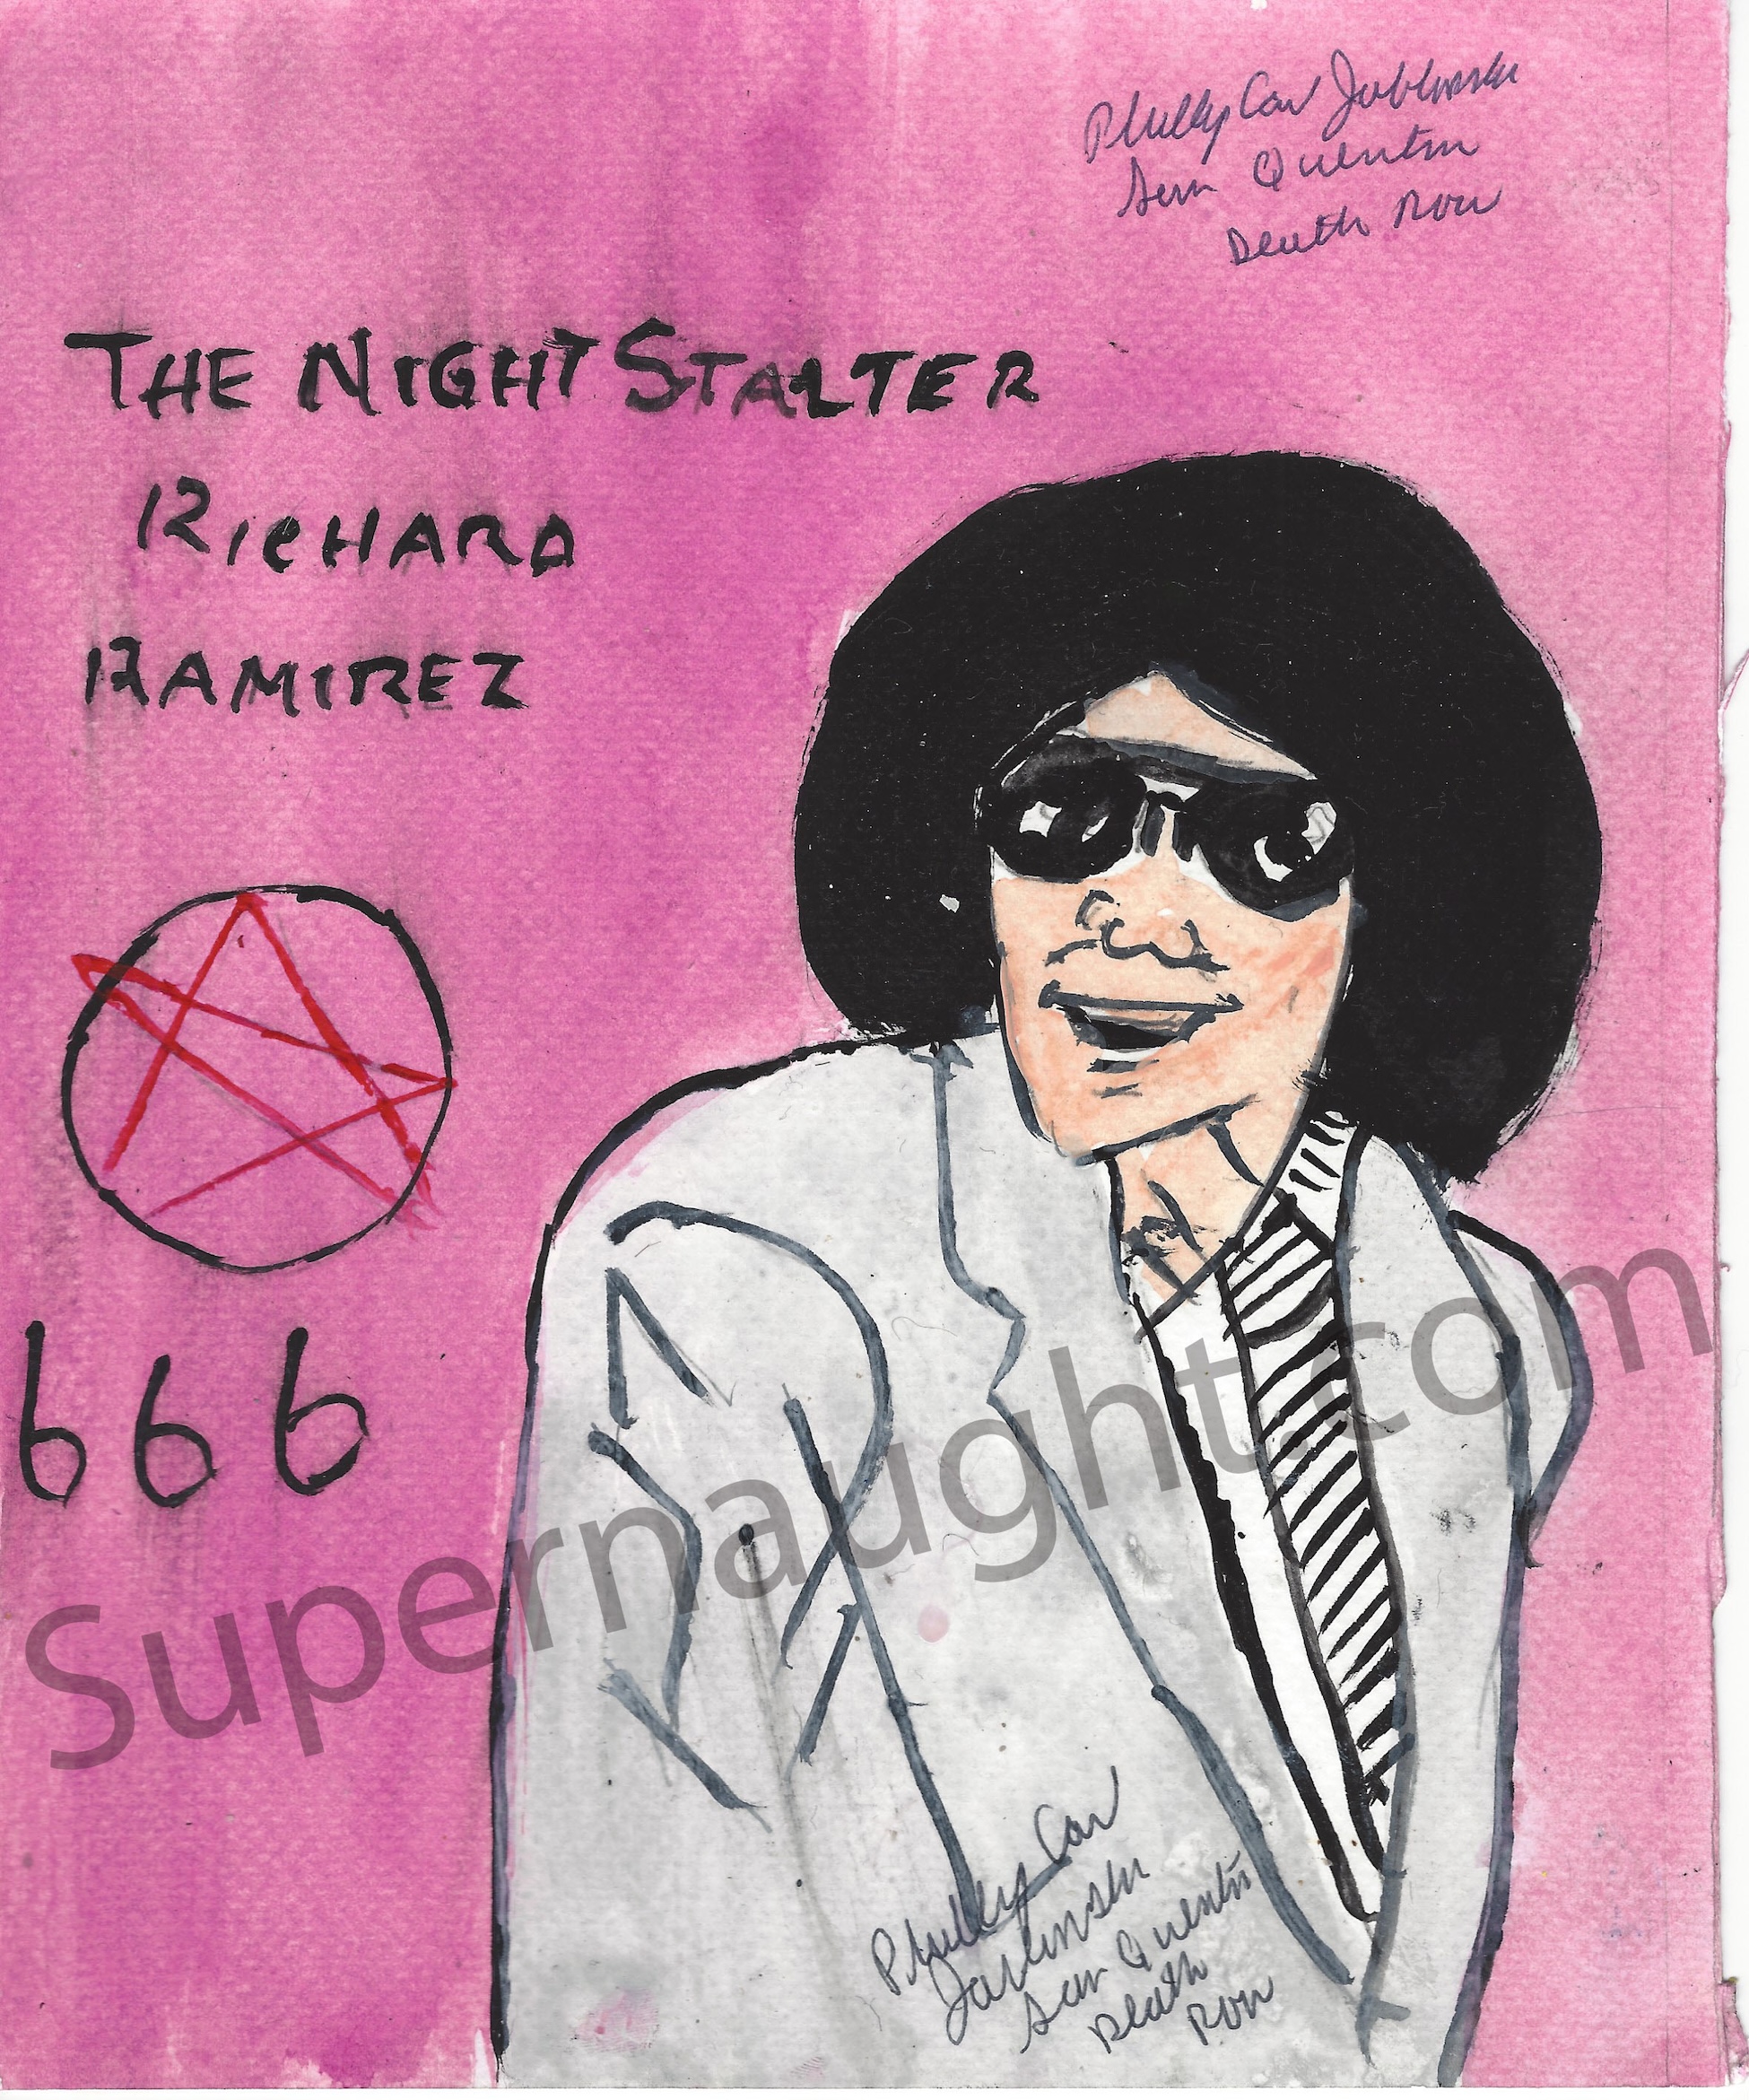 Phillip Carl Jablonski
San Quentin
Death Row
THE NIGHT STALTER
RICHARD
RAMIREZ
666
Supernaught.com
Phillip Carl
Jablonski
San Quentin
Death
Row